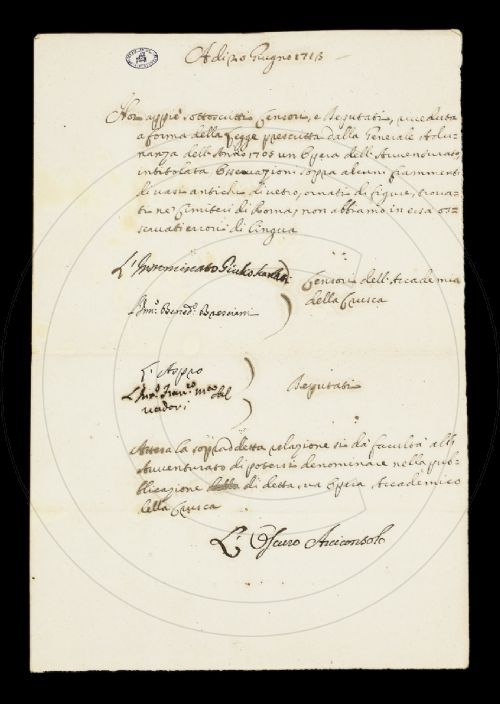 A di 20 Giugno 1715
Noi appiè sottoscritti Censori, e Deputati, riveduta
a forma della Legge prescritta dalla Generale Adu-
nanza dell'Anno 1705 un'Opera dell'Avventurato,
intitolata Osservazioni sopra alcuni frammenti
di vasi antichi di vetro, ornati di figure, trova-
ti ne' Cimiteri di Roma, non abbiamo in essa os-
servati errori di lingua
L'Innominato
Censori dell'Accademia
della Crusca
Bened.º Bresciani
L'Aspro
Deputati
Attesa la sopraddetta relazione si dà facultà all'
Avventurato di potersi denominare nella pub-
blicazione di detta sua Opera Accademico
della Crusca
L'Oscuro Arciconsolo